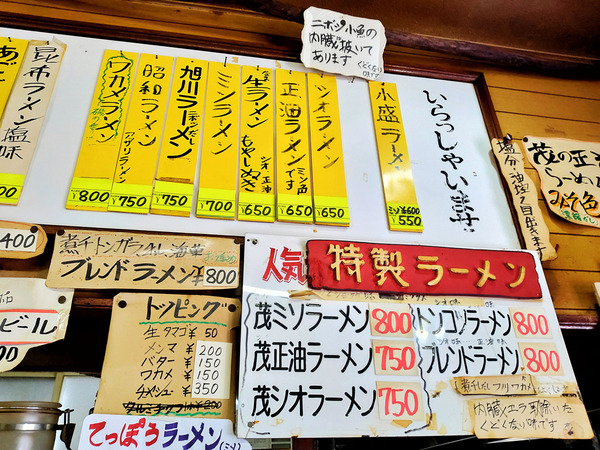 ニボシ小魚の
内臓は抜いて
あります
くどくない
味です
いらっしゃいませ
昆布ラーメン
塩味
ワカメラーメン
800
昭和ラーメン
アサリラーメン
750
旭川ラーメン
750
ミソラーメン
700
生ラーメン
もやしぬき
シオ 正油
650
正油ラーメン
ミソ角
です
650
シオラーメン
750
小盛ラーメン
ミソ¥600
550
塩分・油控え目
茂の正油
らーめん
400
ビール
煮干トンガラ
ブレンドラーメン ¥800
トッピング
生タマゴ ¥50
メンマ ¥200
バター ¥150
ワカメ ¥150
チャーシュー ¥350
人気
特製ラーメン
茂ミソラーメン 800
茂正油ラーメン 750
茂シオラーメン 750
トンコツラーメン 800
シオ味 正油味
ブレンドラーメン 800
煮干だしフノリワカメ
内臓、エラ取除いた
くどくない味です
てっぽうラーメン(ミソ)